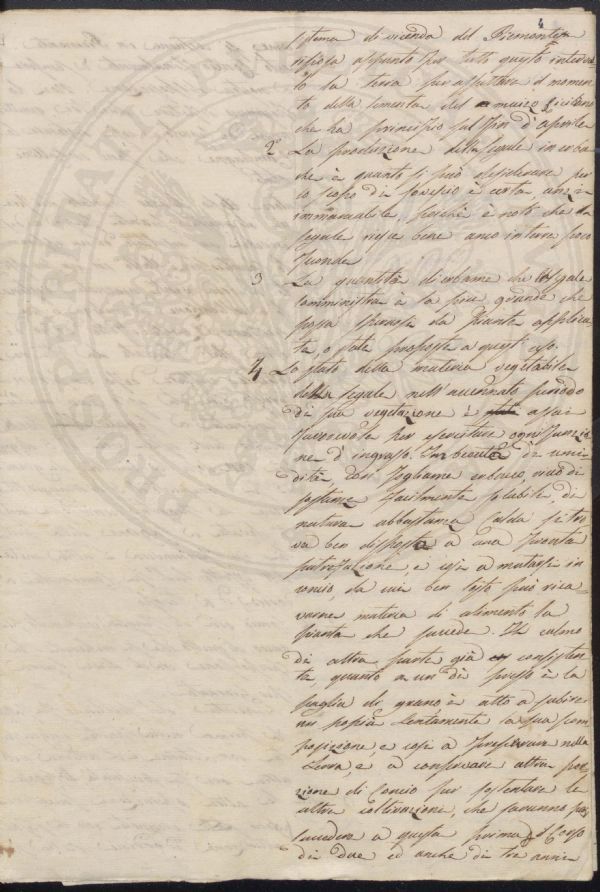 4
sistema di vicenda del Piemonte
riposa appunto per tutto questo interval-
lo la terra per aspettare il momen-
to della sementa del
che ha principio sul fin d'Aprile
2° La produzione della segale in erba
che è quanto si può desiderare per
lo scopo di sovescio è certa anzi
immancabile, poichè è noto che la
segale riesce bene anco in terre poco
feconde
3 La quantità di erbame che la segale
somministra è la più grande che
possa sperarsi da piante applica-
te, o state proposte a quest'uso.
4 Lo stato della materia vegetabile
della segale nell'accennato periodo
di sua vegetazione è assai
favorevole per esercitare ogni funzio-
ne d'ingrasso. Imbevuta di umi-
dità, con fogliame erbaceo, ricco di
sostanze facilmente solubili, di
natura abbastanza calda si tro-
va ben disposta a una pronta
putrefazione, e così a mutarsi in
concio, da cui ben tosto può rica-
varne materia di alimento la
pianta che succede. Il culmo
di altra parte già consisten-
te quanto a un di presso è la
paglia di grano è atto a subire
un poco lentamente la sua com-
posizione, e così a preservare nella
terra, e a conservare altra por-
zione di concio per sostentare le
altre coltivazioni, che saranno per
succedere a questa prima nel corso
di due ed anche di tre anni
PROSPERITATI